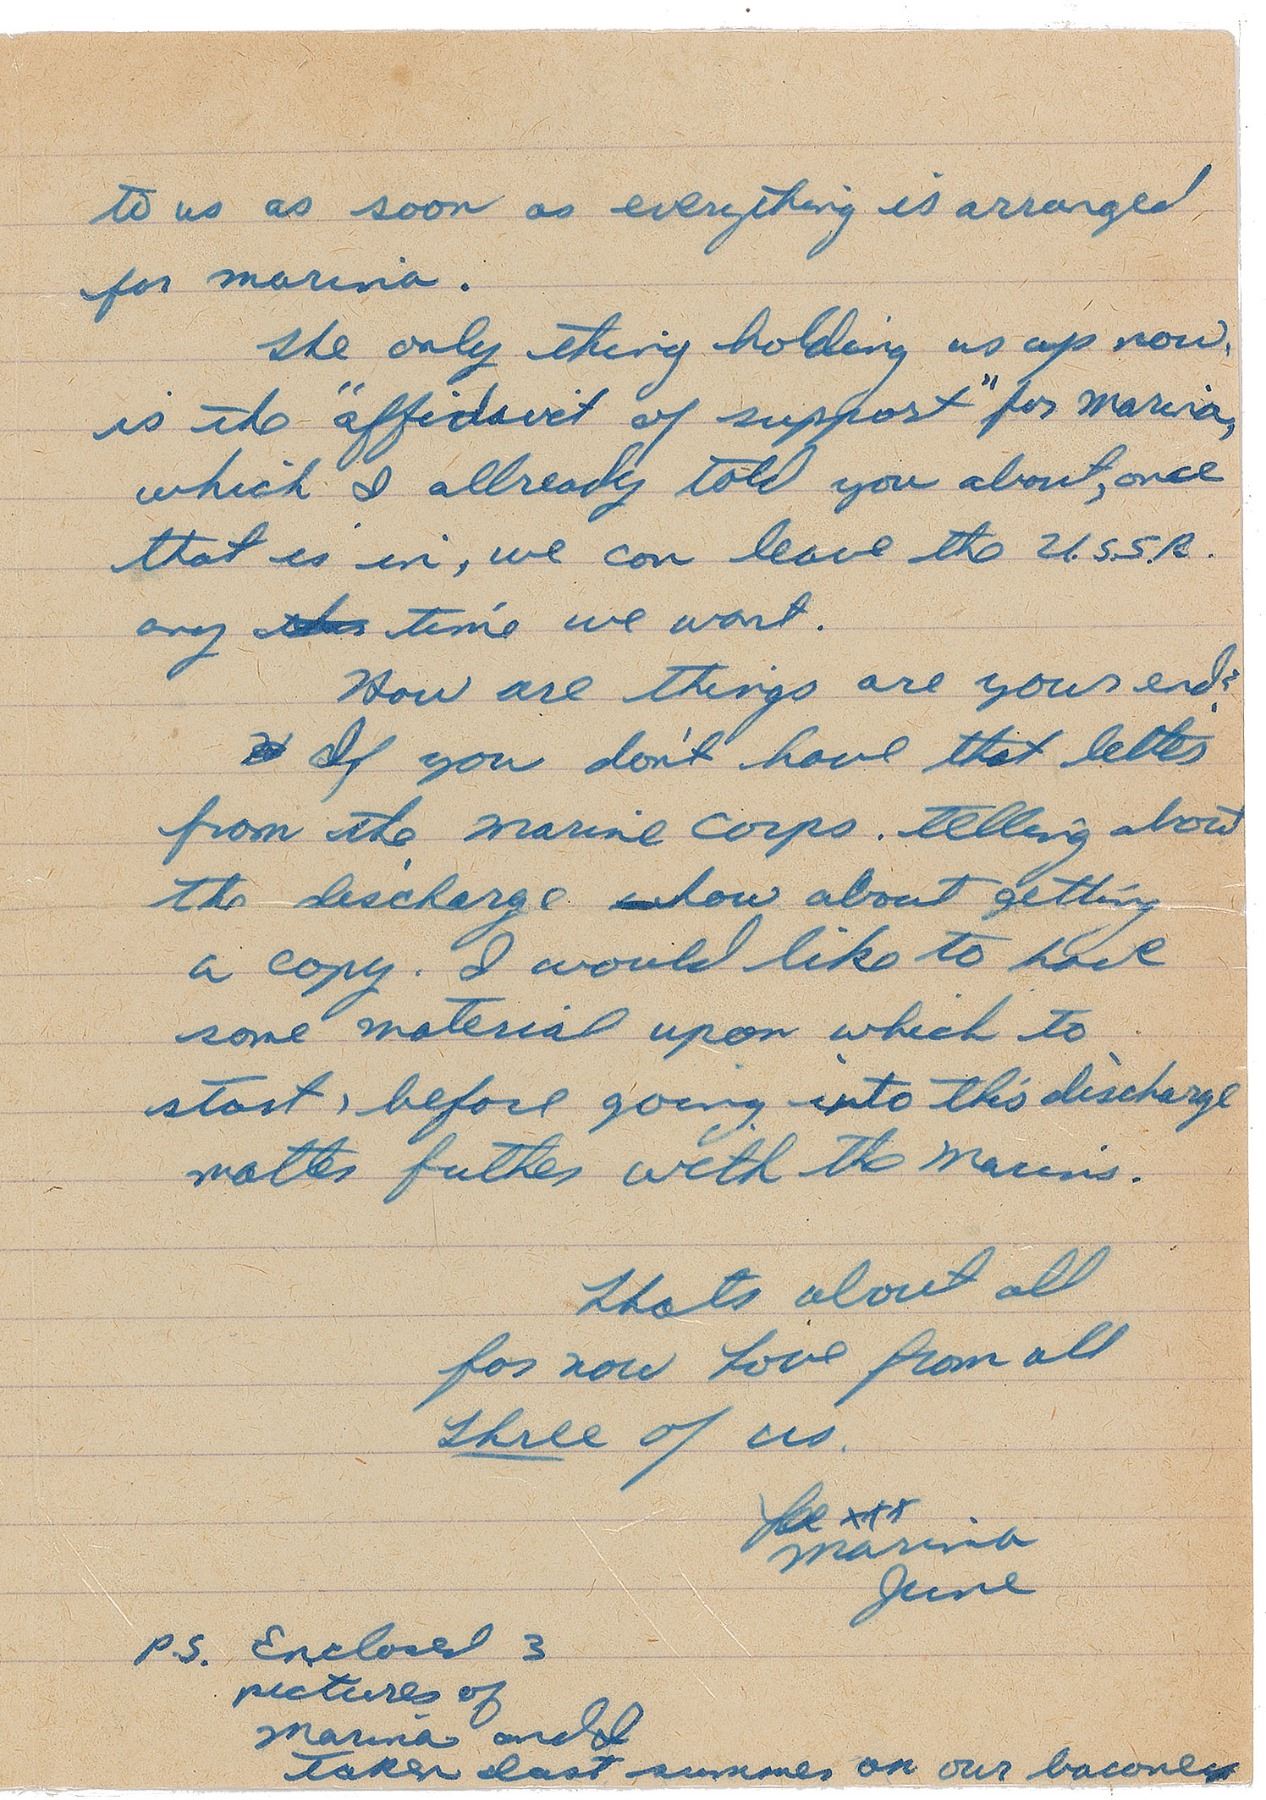 to us as soon as everything is arranged
for marina.
The only thing holding us up now,
is the "affidavit of support" for Marina,
which I allready told you about, once
that is in, we can leave the U.S.S.R.
any time we want.
How are things are your end?
If you don't have that letter
from the Marine Corps. telling about
the discharge how about getting
a copy. I would like to have
some material upon which to
start, before going into this discharge
matter futher with the Marins.
Thats about all
for now Love from all
three of us.
Lee xxx
Marina
June
P.S. Enclosed 3
pictures of
Marina and I
taken last summer on our baconey